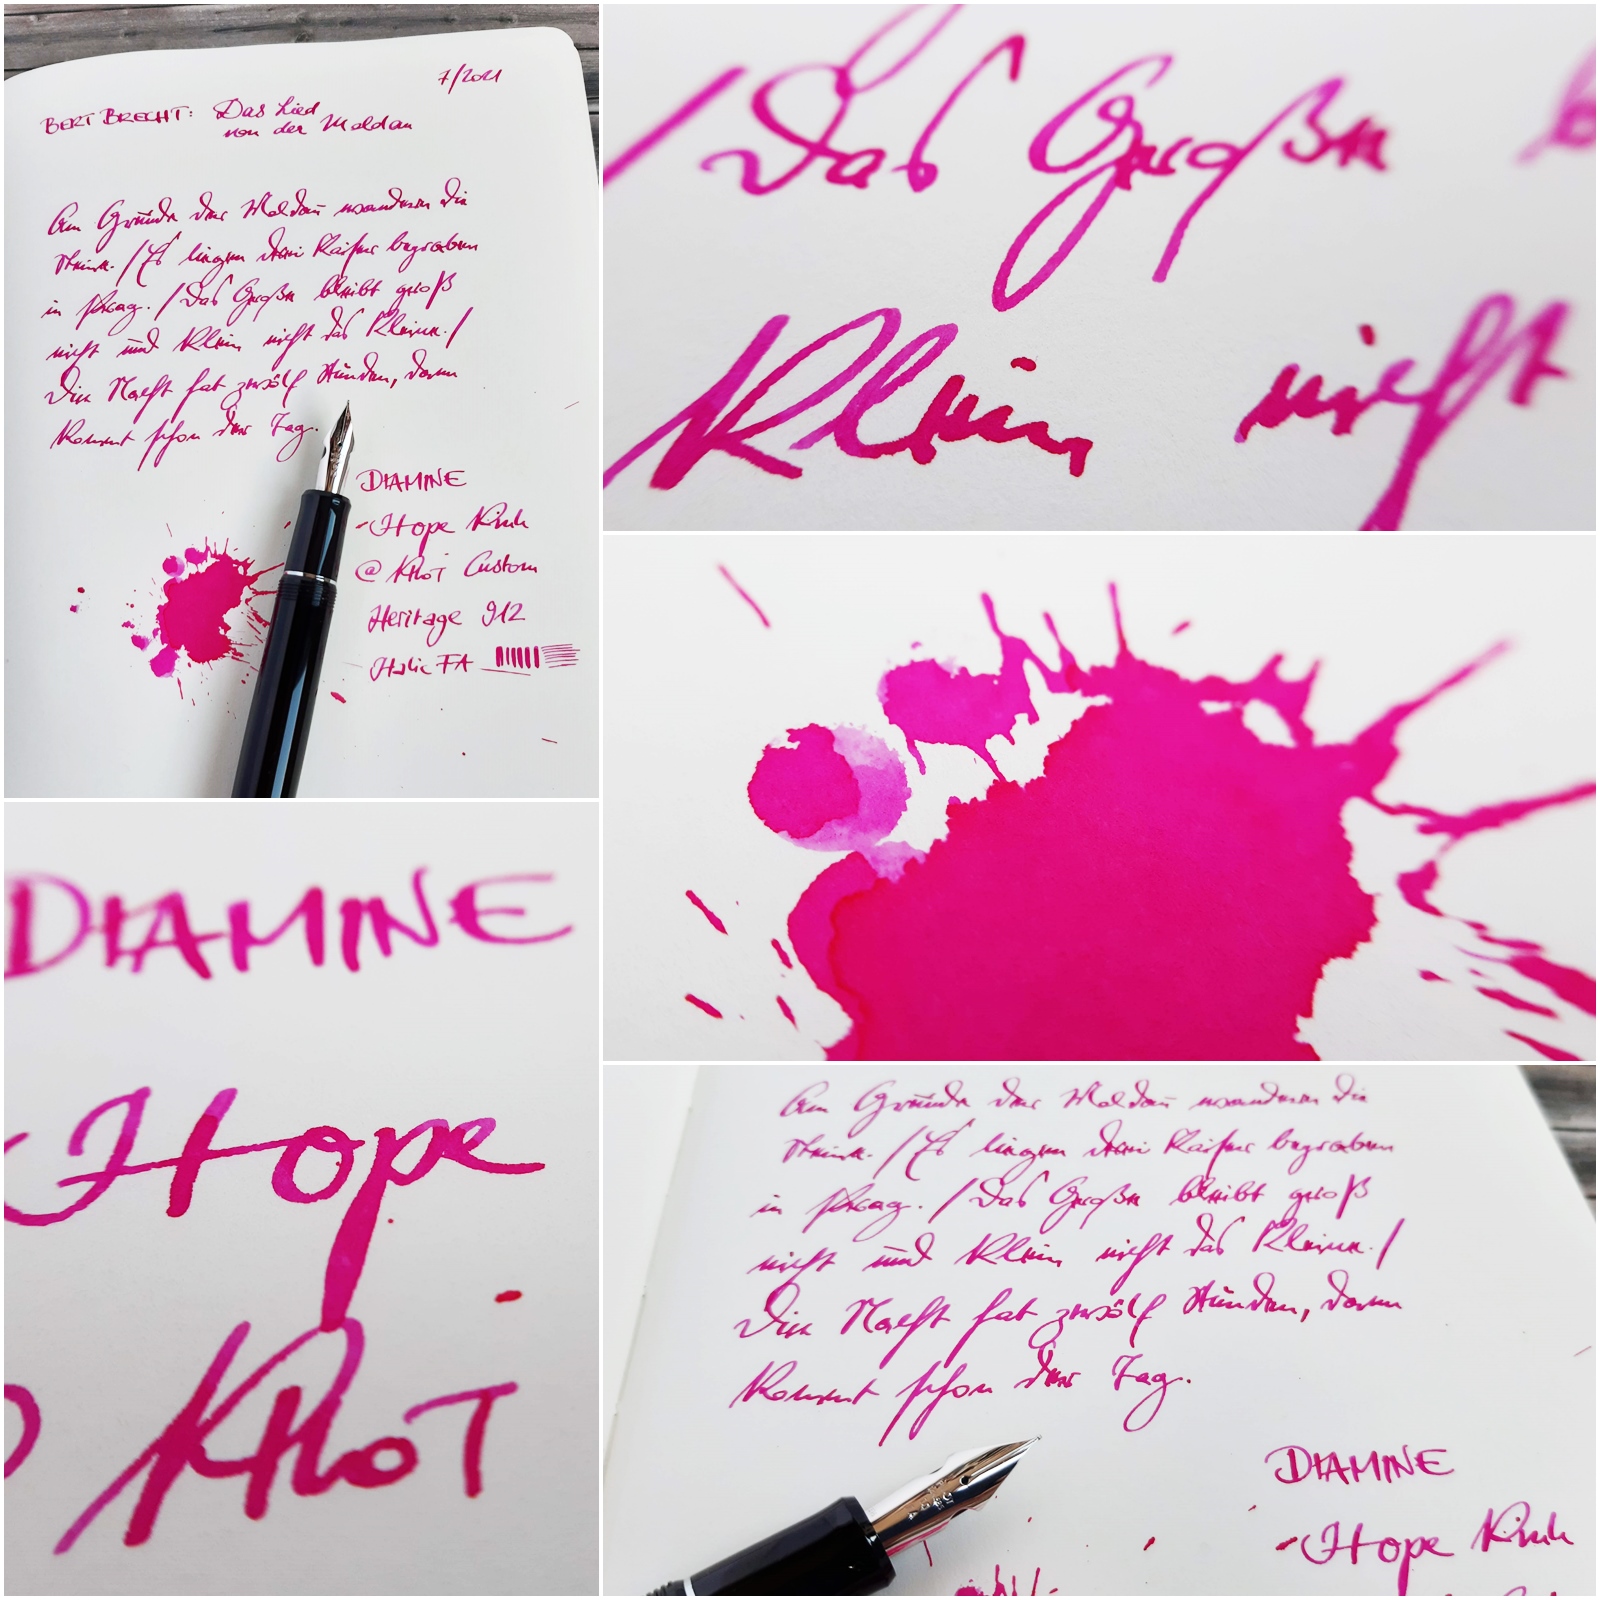 7/2021
BERT BRECHT: Das Lied
von der Moldau
Am Grunde der Moldau wandern die
Steine. / Es liegen drei Kaiser begraben
in Prag. / Das Große bleibt groß
nicht und Klein nicht das Kleine. /
Die Nacht hat zwölf Stunden, dann
Kommt schon der Tag.
DIAMINE
-Hope Pink
@ PiloT Custom
Heritage 912
Italic FA
/ Das Große b
Klein nicht
DIAMINE
Hope
PiloT
Am Grunde der Moldau wandern die
Steine. / Es liegen drei Kaiser begraben
in Prag. / Das Große bleibt groß
nicht und Klein nicht das Kleine. /
Die Nacht hat zwölf Stunden, dann
Kommt schon der Tag.
DIAMINE
-Hope Pink